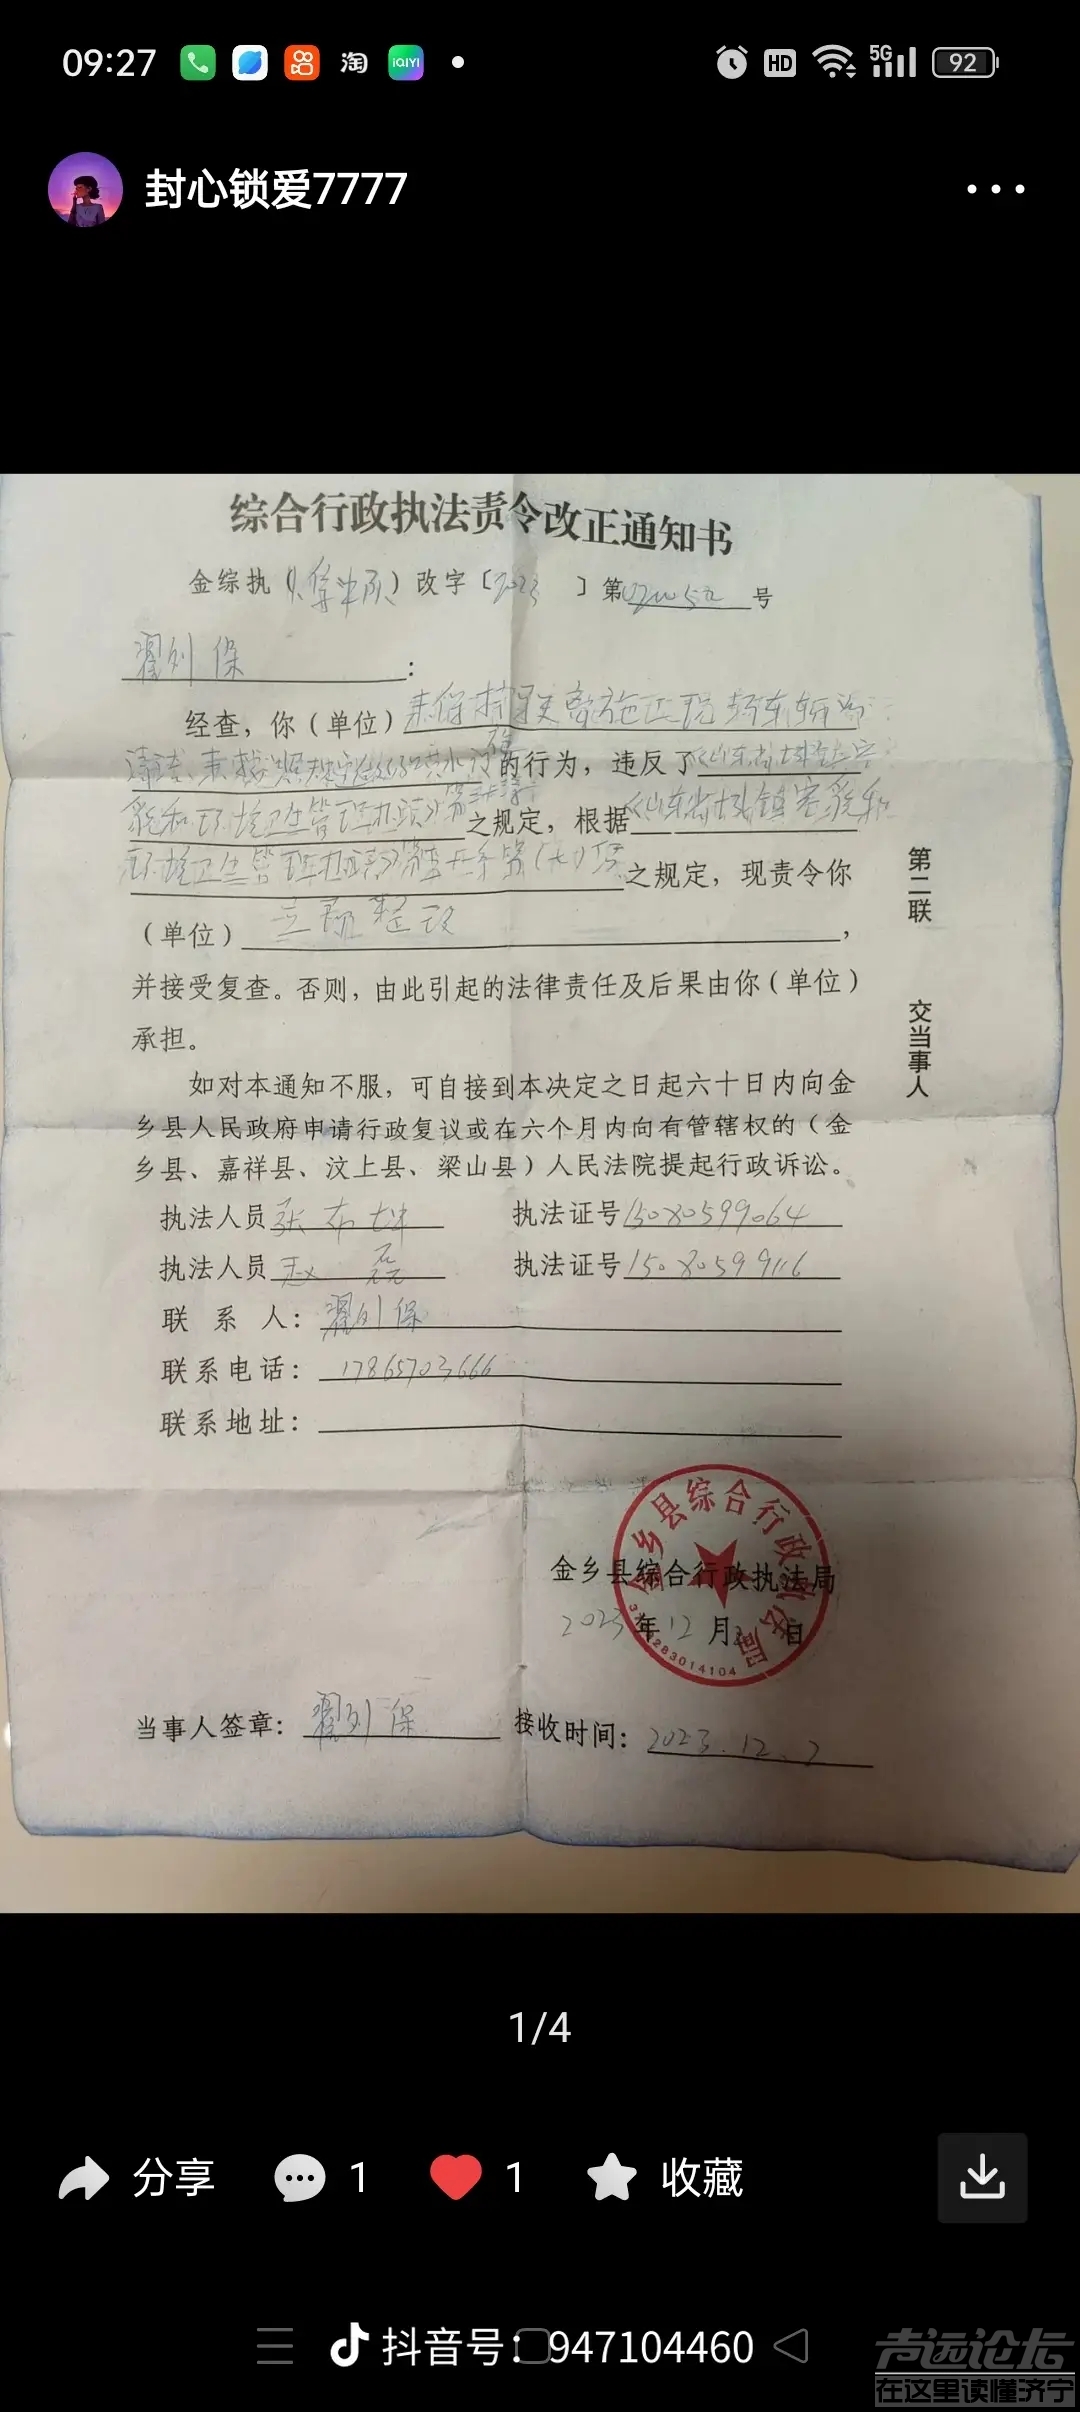 09:27
淘
iQIYI
HD
5G
92
封心锁爱7777
综合行政执法责令改正通知书
金综执( 中队)改字〔2023 〕第 号
翟列保:
经查,你(单位)未保持
的行为,违反了《山东省城镇容
貌和环境卫生管理办法》第 之规定,根据《山东省城镇容貌和
环境卫生管理办法》第 条第 项之规定,现责令你
(单位)立即整改,
并接受复查。否则,由此引起的法律责任及后果由你(单位)
承担。
如对本通知不服,可自接到本决定之日起六十日内向金
乡县人民政府申请行政复议或在六个月内向有管辖权的(金
乡县、嘉祥县、汶上县、梁山县)人民法院提起行政诉讼。
执法人员张 执法证号15080599064
执法人员赵磊 执法证号15080599116
联系人:翟列保
联系电话:17865703666
联系地址:
金乡县综合行政执法局
金乡县综合行政执法局
2023年12月 日
283014104
当事人签章:翟列保 接收时间:2023.12.7
第二联 交当事人
1/4
分享
1
1
收藏
抖音号:947104460
声远论坛
在这里读懂济宁